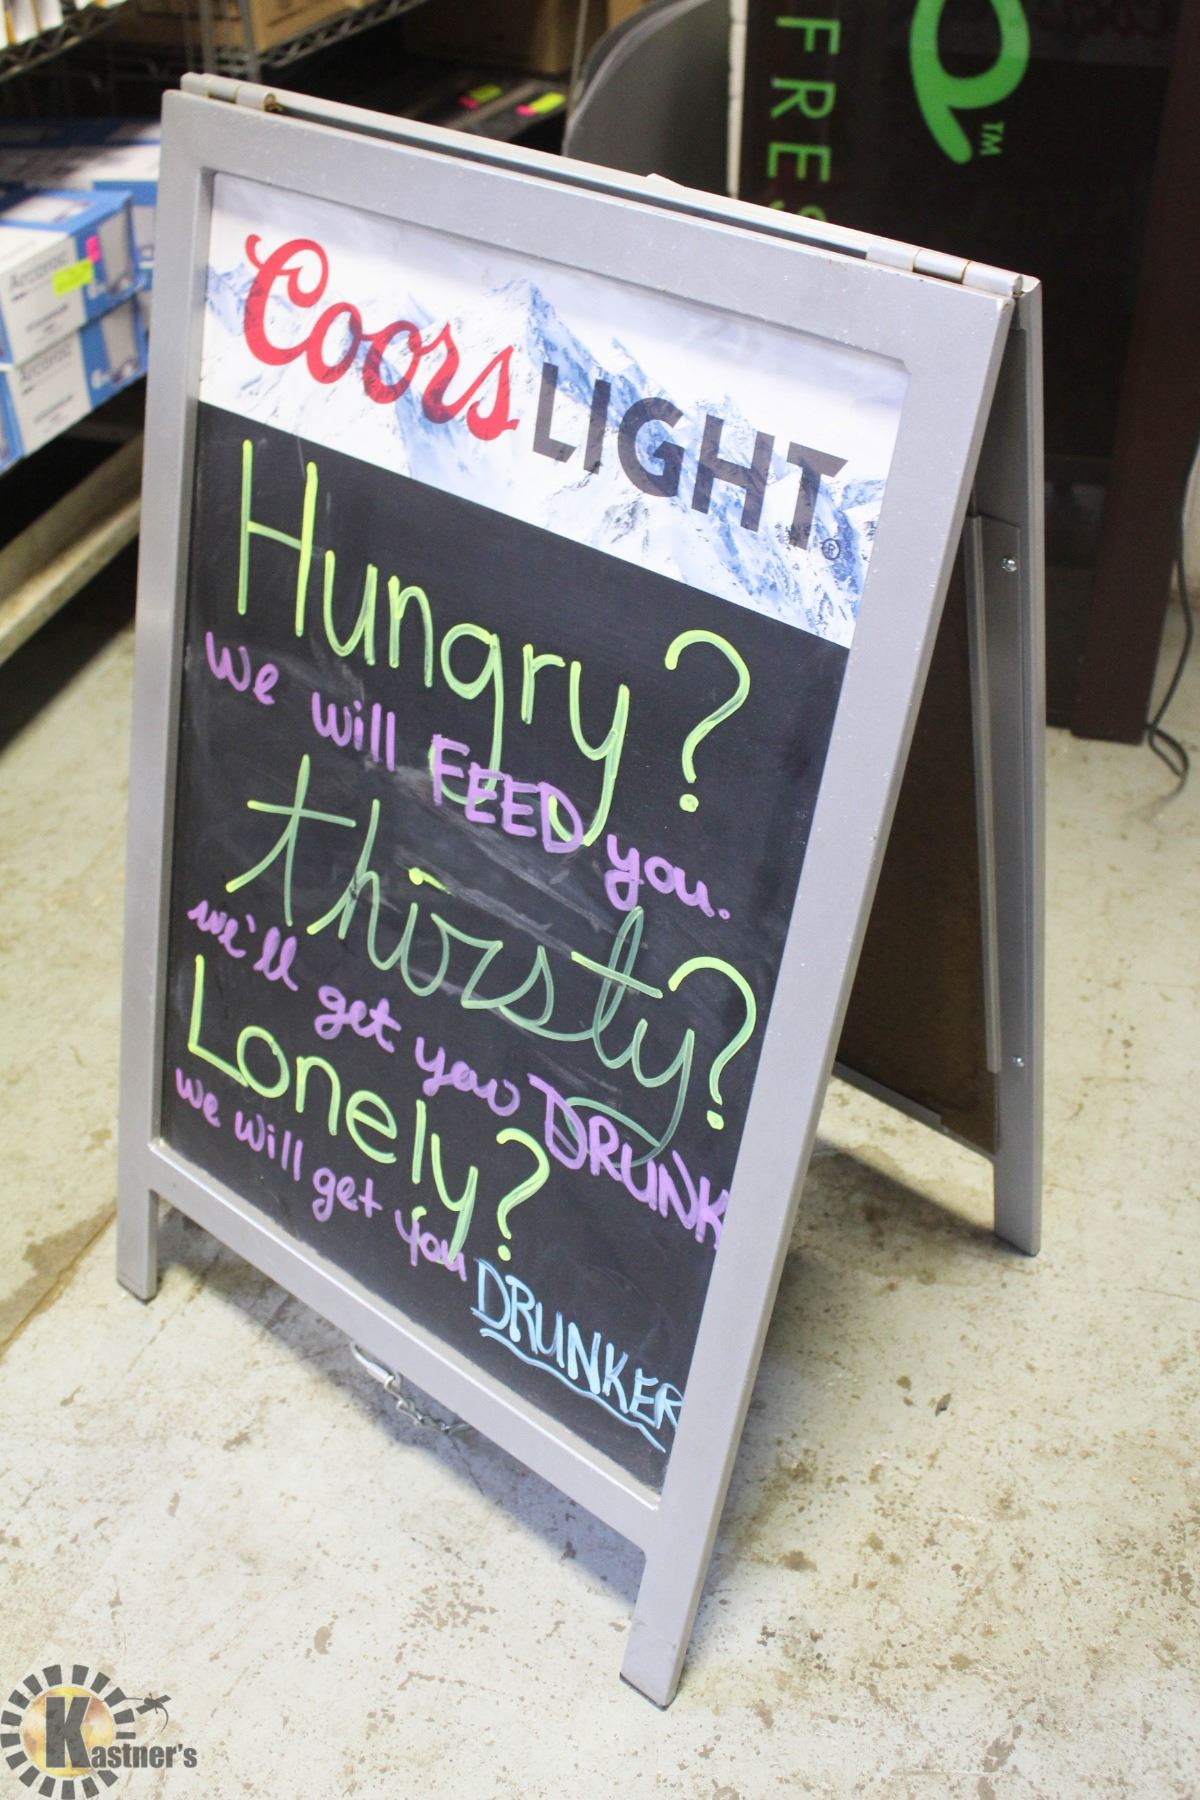 FRES
TM
Arcoroc
Arcoroc
Coors LIGHT®
Hungry?
we will FEED you.
thirsty?
we'll get you DRUNK
Lonely?
we will get you DRUNKER
Kastner's